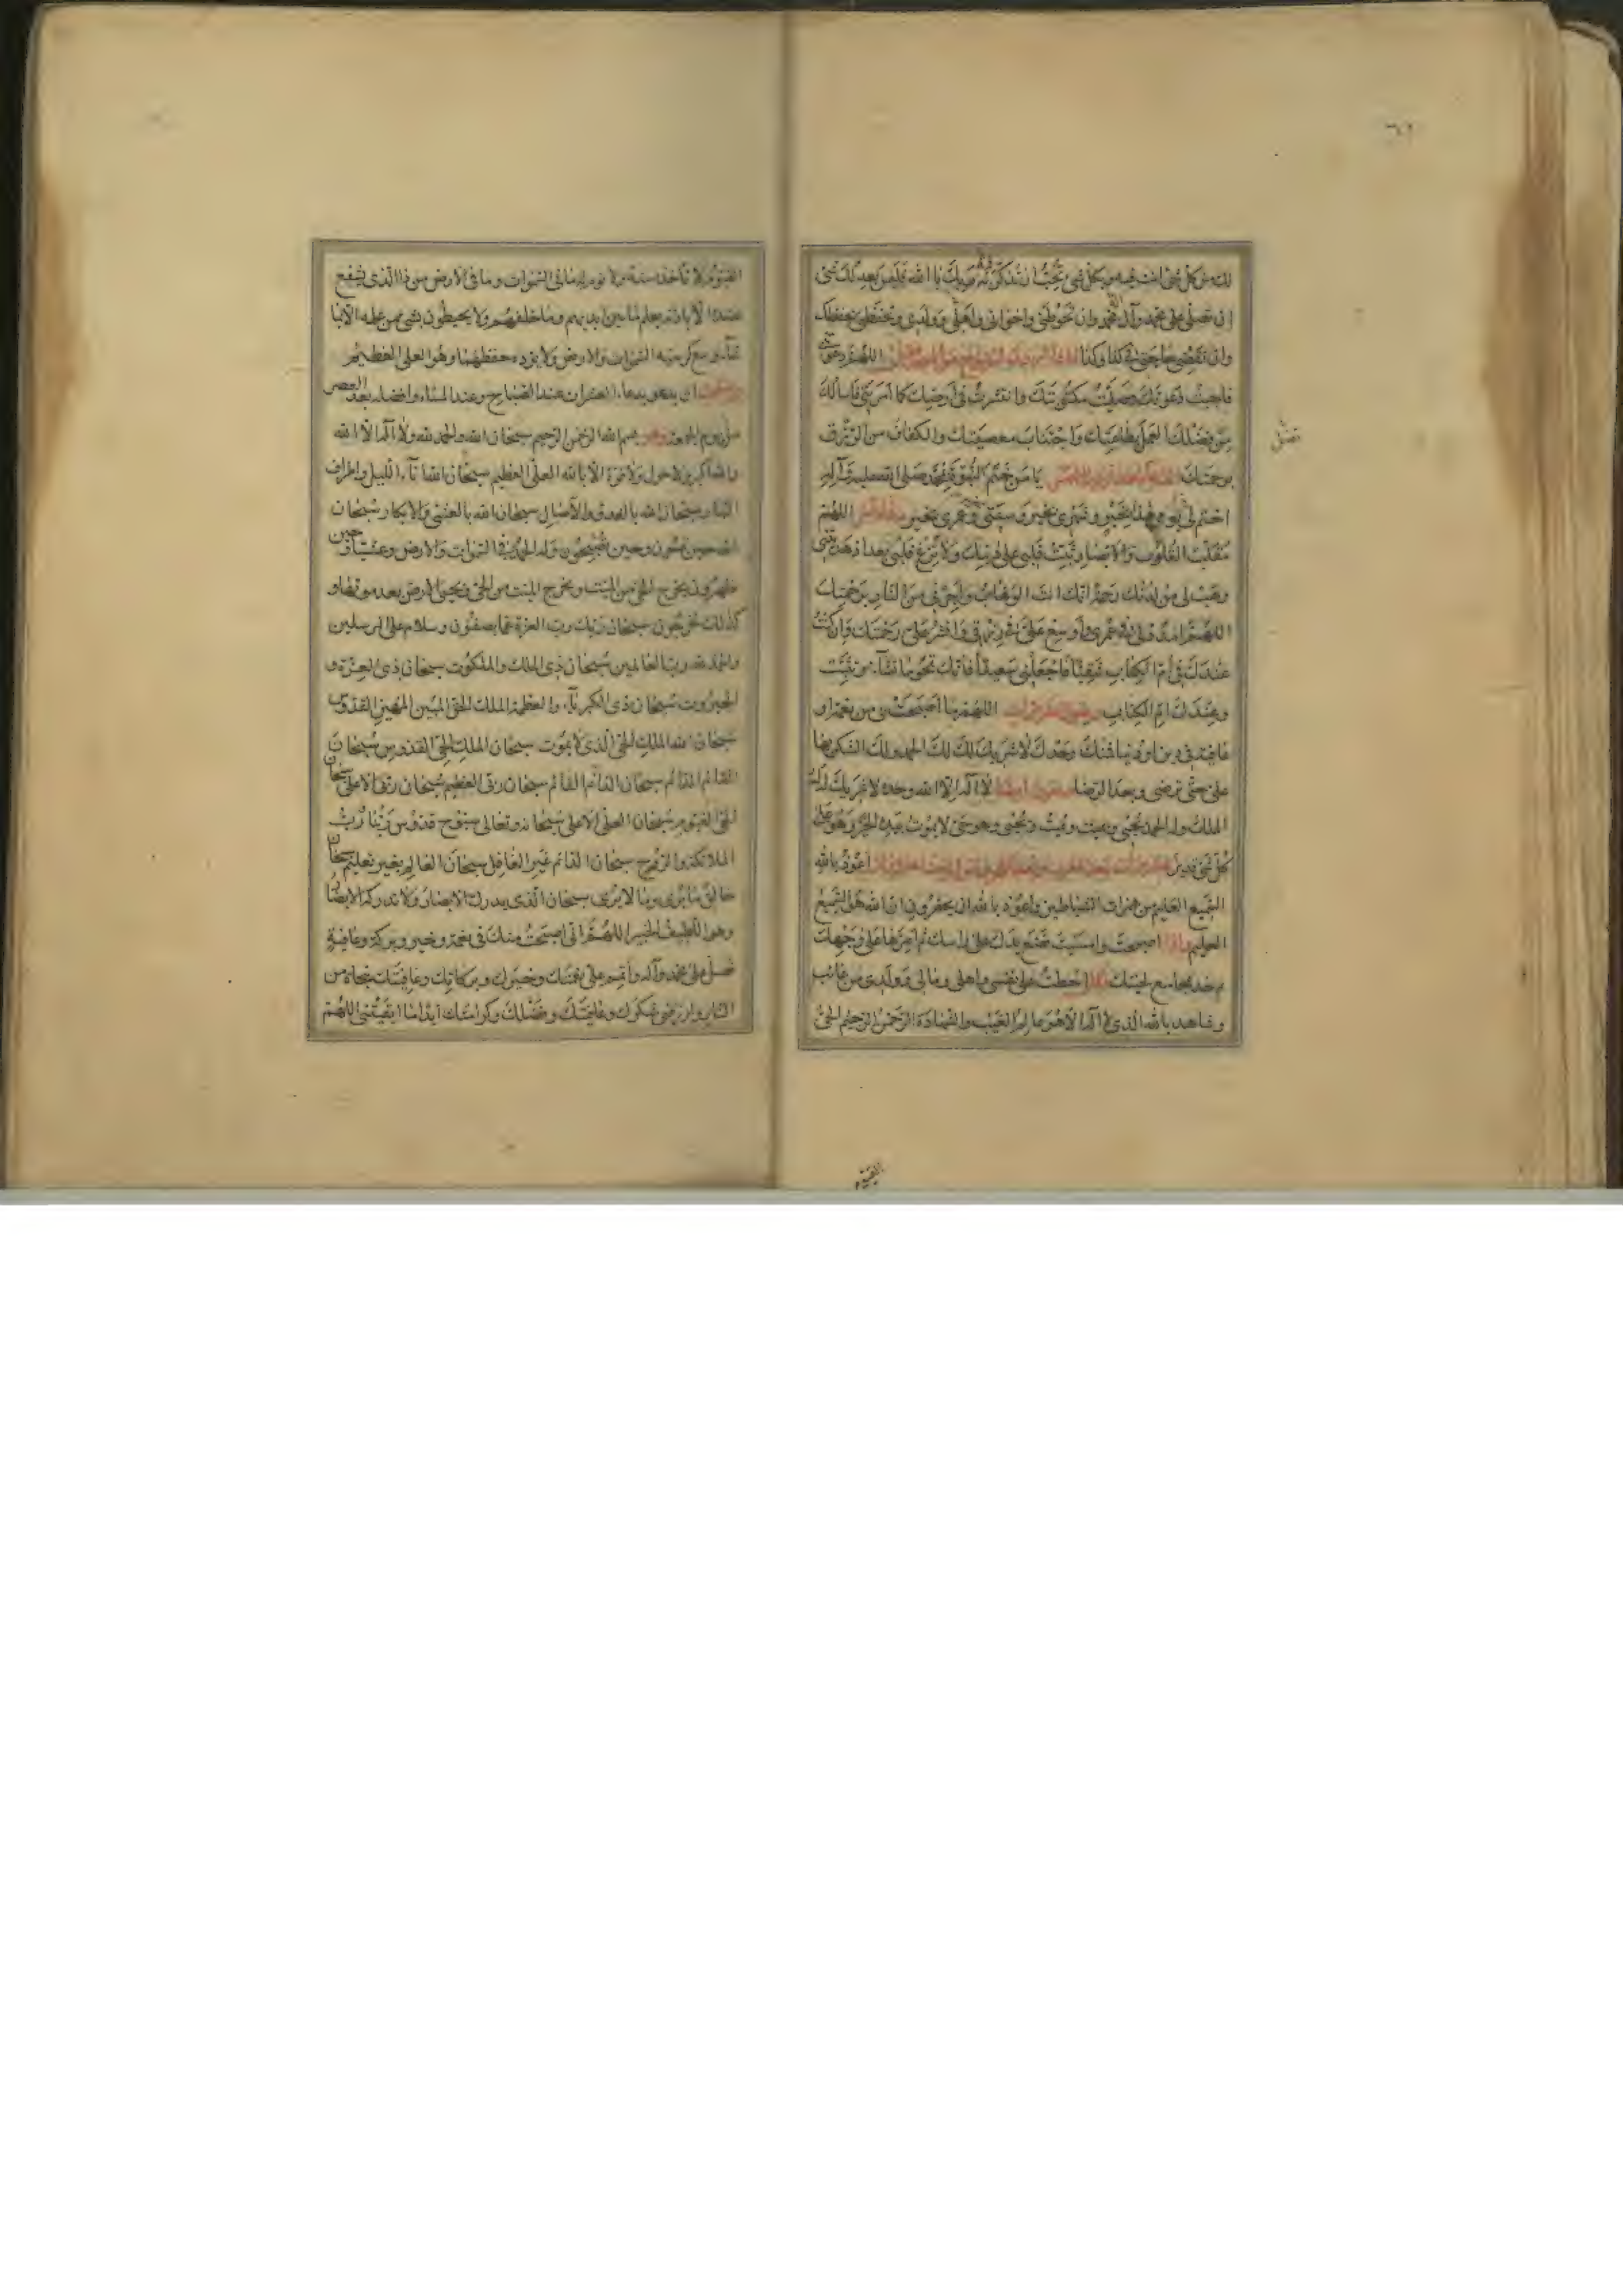 ان تصلى على محمد وآل محمد وان تحوطنى واخوانى واهلى وولدى وتحفظنى بحفظك
وان تقضى حاجتى فى كذا وكذا اللهم دعوتنى
فاجبت دعوتك وصليت مكتوبتك وانتشرت فى ارضك كما امرتنى فاسالك
من فضلك العمل بطاعتك واجتناب معصيتك والكفاف من الرزق
برحمتك يا من ختم النبوة بمحمد صلى الله عليه وآله
اختم لى يومى هذا بخير وشهرى بخير وسنتى بخير وعمرى بخير اللهم
مقلب القلوب والابصار ثبت قلبى على دينك ولا تزغ قلبى بعد اذ هديتنى
وهب لى من لدنك رحمة انك انت الوهاب واجرنى من النار برحمتك
اللهم امدد لى فى عمرى واوسع على فى رزقى وانشر على رحمتك وان كنت
عندك فى ام الكتاب شقيا فاجعلنى سعيدا فانك تمحو ما تشآء وتثبت
وعندك ام الكتاب اللهم ما اصبحت بى من نعمة او
عافية فى دين او دنيا فمنك وحدك لا شريك لك لك الحمد ولك الشكر بها
على حتى ترضى وبعد الرضا لا اله الا الله وحده لا شريك له له
الملك وله الحمد يحيى ويميت ويميت ويحيى وهو حى لا يموت بيده الخير وهو على
كل شئ قدير اعوذ بالله
السميع العليم من همزات الشياطين واعوذ بالله ان يحضرون ان الله هو السميع
العليم واذا اصبحت وامسيت فضع يدك على راسك ثم امرها على وجهك
ثم خذ بمجامع لحيتك وقل احطت على نفسى واهلى ومالى وولدى من غائب
وشاهد بالله الذى لا اله الا هو عالم الغيب والشهادة الرحمن الرحيم الحى
القيوم
القيوم لا تاخذه سنة ولا نوم له ما فى السموات وما فى الارض من ذا الذى يشفع
عنده الا باذنه يعلم ما بين ايديهم وما خلفهم ولا يحيطون بشئ من علمه الا بما
شآء وسع كرسيه السموات والارض ولا يؤده حفظهما وهو العلى العظيم
ان يدعو بدعاء العشرات عند الصباح وعند المساء وافضله بعد العصر
من يوم الجمعة وهو بسم الله الرحمن الرحيم سبحان الله والحمد لله ولا اله الا الله
والله اكبر ولا حول ولا قوة الا بالله العلى العظيم سبحان الله اناء الليل واطراف
النهار سبحان الله بالغدو والاصال سبحان الله بالعشى والابكار سبحان
الله حين تمسون وحين تصبحون وله الحمد فى السموات والارض وعشيا وحين
تظهرون يخرج الحى من الميت ويخرج الميت من الحى ويحيى الارض بعد موتها و
كذلك تخرجون سبحان ربك رب العزة عما يصفون وسلام على المرسلين
والحمد لله رب العالمين سبحان ذى الملك والملكوت سبحان ذى العزة و
الجبروت سبحان ذى الكبريآء والعظمة الملك الحق المبين المهيمن القدوس
سبحان الله الملك الحى الذى لا يموت سبحان الملك الحى القدوس سبحان
القائم الدائم سبحان الدائم القائم سبحان ربى العظيم سبحان ربى الاعلى سبحان
الحى القيوم سبحان العلى الاعلى سبحانه وتعالى سبوح قدوس ربنا رب
الملائكة والروح سبحان الدائم غير الغافل سبحان العالم بغير تعليم سبحان
خالق ما يرى وما لا يرى سبحان الذى يدرك الابصار ولا تدركه الابصار
وهو اللطيف الخبير اللهم انى اصبحت منك فى نعمة وخير وبركة وعافية
فصل على محمد وآله واتمم على نعمتك وخيرك وبركاتك وعافيتك بنجاة من
النار وارزقنى شكرك وعافيتك وفضلك وكرامتك ابدا ما ابقيتنى اللهم